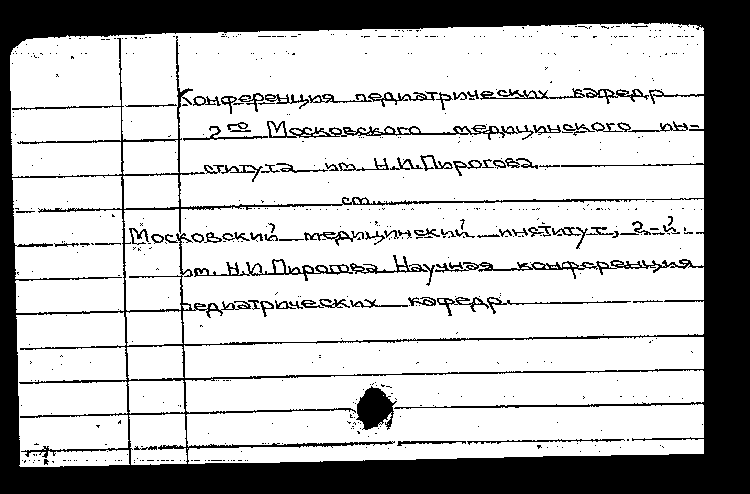 Конференция педиатрических кафедр
2го Московского медицинского ин-
ститута им. Н.И.Пирогова.
см.
Московский медицинский институт, 2-й.
им. Н.И.Пирогова. Научная конференция
педиатрических кафедр.